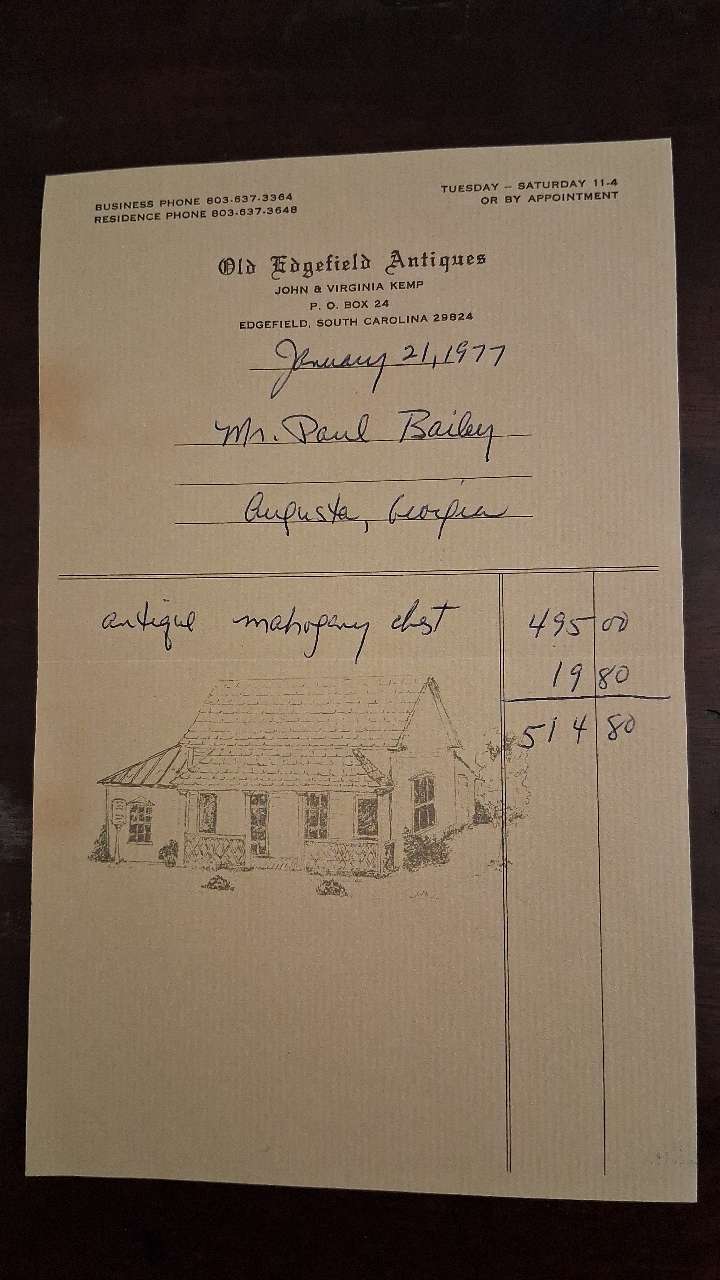 BUSINESS PHONE 803-637-3364
RESIDENCE PHONE 803-637-3648
TUESDAY – SATURDAY 11-4
OR BY APPOINTMENT
Old Edgefield Antiques
JOHN & VIRGINIA KEMP
P. O. BOX 24
EDGEFIELD, SOUTH CAROLINA 29824
January 21, 1977
Mr. Paul Bailey
Augusta, Georgia
antique mahogany chest 495 00
19 80
514 80